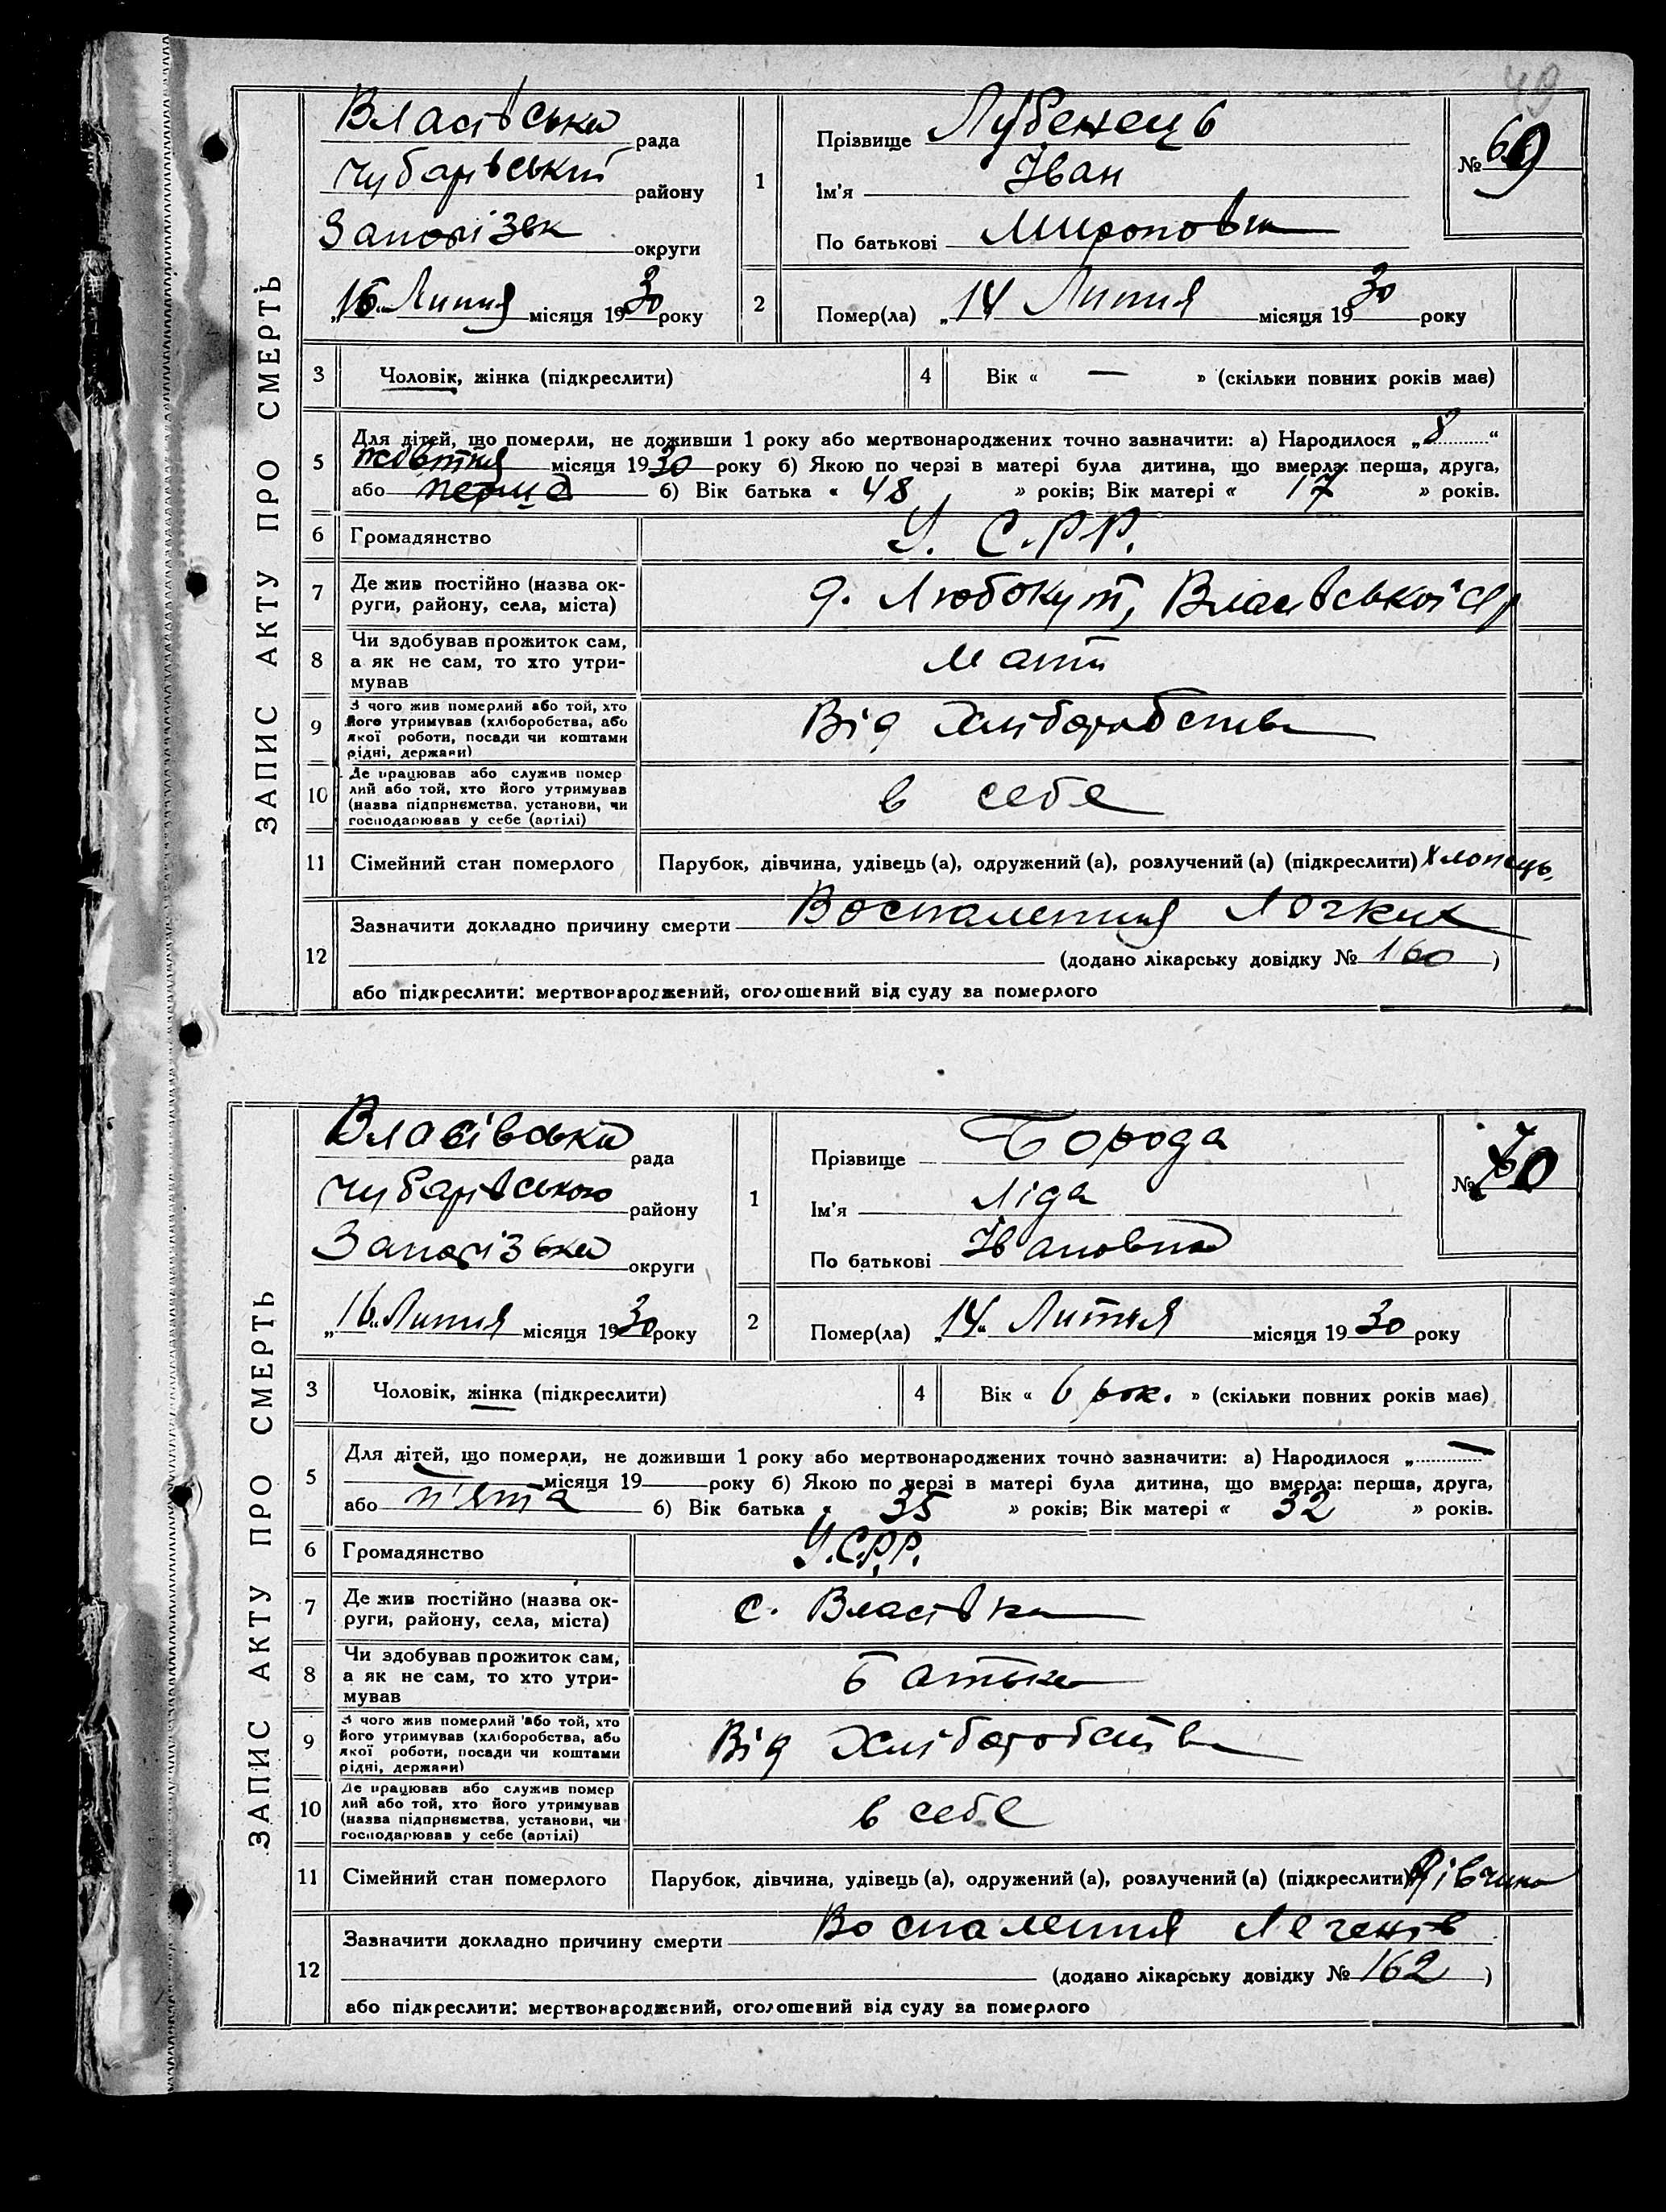 49
ЗАПИС АКТУ ПРО СМЕРТЬ
Власівська рада
Чубарівський району
Запорізьк округи
„16“ Липня місяця 1930 року
1
Прізвище Лубенець
Ім'я Іван
По батькові Миронови
№ 69
2
Помер(ла) „14 Липня місяця 1930 року
3
Чоловік, жінка (підкреслити)
4
Вік « — » (скільки повних років має)
5
Для дітей, що померли, не доживши 1 року або мертвонароджених точно зазначити: а) Народилося „8“
жовтня місяця 1930 року б) Якою по черзі в матері була дитина, що вмерла: перша, друга,
або перша б) Вік батька « 48 » років; Вік матері « 17 » років.
6
Громадянство У. С.Р.Р.
7
Де жив постійно (назва ок-
руги, району, села, міста)
д. Любокут, Власівської с/р
8
Чи здобував прожиток сам,
а як не сам, то хто утри-
мував
Мати
9
З чого жив померлий або той, хто
його утримував (хліборобства, або
якої роботи, посади чи коштами
рідні, держави)
Від Хліборобства
10
Де працював або служив помер
лий або той, хто його утримував
(назва підприємства, установи, чи
господарював у себе (артілі)
в себе
11
Сімейний стан померлого
Парубок, дівчина, удівець (а), одружений (а), розлучений (а) (підкреслити) Хлопець.
12
Зазначити докладно причину смерти Воспаления Логких
(додано лікарську довідку № 160)
або підкреслити: мертвонароджений, оголошений від суду за померлого
ЗАПИС АКТУ ПРО СМЕРТЬ
Власівська рада
Чубарівською району
Запорізька округи
„16“ Липня місяця 1930 року
1
Прізвище Борода
Ім'я Ліда
По батькові Івановна
№ 70
2
Помер(ла) „14“ Липня місяця 1930 року
3
Чоловік, жінка (підкреслити)
4
Вік « 6 рок. » (скільки повних років має)
5
Для дітей, що померли, не доживши 1 року або мертвонароджених точно зазначити: а) Народилося „—
— місяця 19 року б) Якою по черзі в матері була дитина, що вмерла: перша, друга,
або п'ята б) Вік батька « 35 » років; Вік матері « 32 » років.
6
Громадянство У.С.Р.Р.
7
Де жив постійно (назва ок-
руги, району, села, міста)
с. Власівка
8
Чи здобував прожиток сам,
а як не сам, то хто утри-
мував
Батько
9
З чого жив померлий або той, хто
його утримував (хліборобства, або
якої роботи, посади чи коштами
рідні, держави)
Від Хліборобства
10
Де працював або служив помер
лий або той, хто його утримував
(назва підприємства, установи, чи
господарював у себе (артілі)
в себе
11
Сімейний стан померлого
Парубок, дівчина, удівець (а), одружений (а), розлучений (а) (підкреслити) Дівчина
12
Зазначити докладно причину смерти Воспаления Легенів
(додано лікарську довідку № 162)
або підкреслити: мертвонароджений, оголошений від суду за померлого